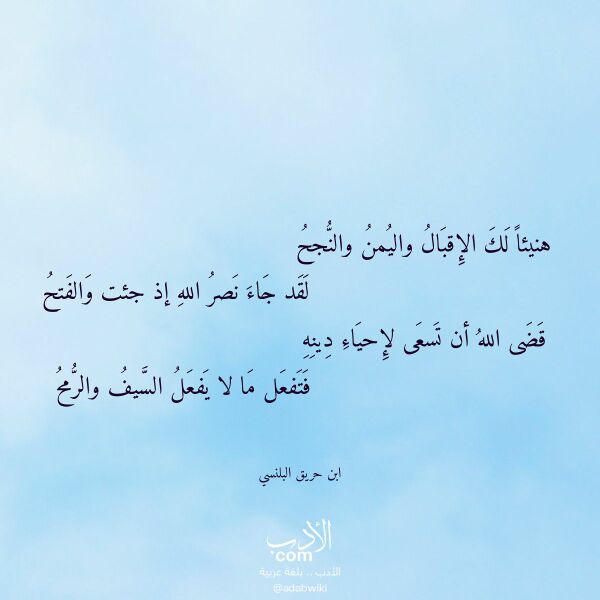 هنيئاً لَكَ الإِقبَالُ واليُمنُ والنُّجحُ
لَقَد جَاءَ نَصرُ اللهِ إذ جئت وَالفَتحُ
قَضَى اللهُ أن تَسعَى لإِحيَاءِ دِينِهِ
فَتَفعَل مَا لا يَفعَلُ السَّيفُ والرُّمحُ
ابن حريق البلنسي
الأدب
com
الأدب .. بلغة عربية
@adabwiki